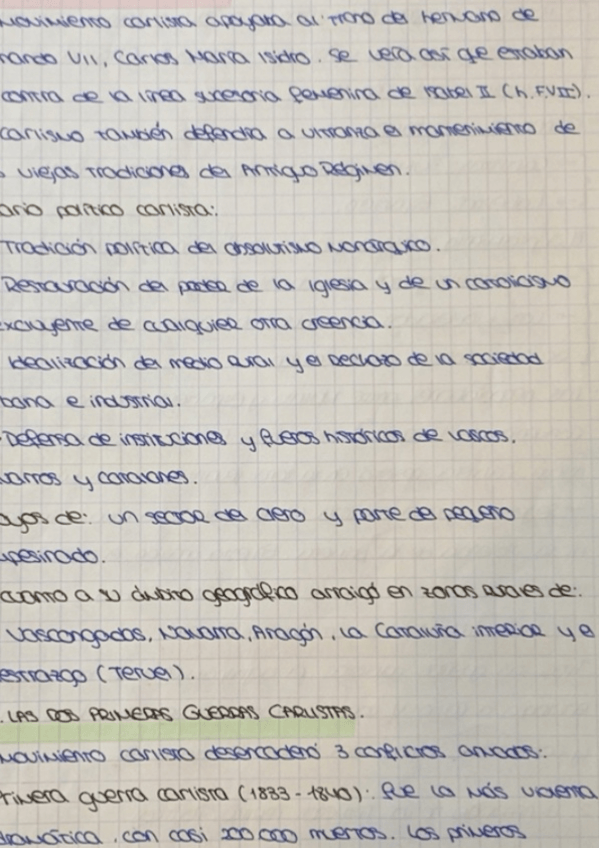 movimiento carlista apoyaba al trono del hermano de
nando VII, Carlos María Isidro. Se veía así que estaban
contra de la línea sucesoria femenina de Isabel II (h. F.VII).
carlismo también defendía a ultranza el mantenimiento de
viejas tradiciones del Antiguo Régimen.
ario político carlista:
Tradición política del absolutismo monárquico.
Restauración del poder de la Iglesia y de un catolicismo
xcluyente de cualquier otra creencia.
Idealización del medio rural y el rechazo de la sociedad
bana e industrial.
- Defensa de instituciones y fueros históricos de vascos,
varros y catalanes.
oyos de: un sector del clero y parte del pequeño
mpesinado.
cuanto a su ámbito geográfico arraigó en zonas rurales de:
Vascongadas, Navarra, Aragón, la Cataluña interior y e
estrazgo (Teruel).
. LAS DOS PRIMERAS GUERRAS CARLISTAS.
movimiento carlista desencadenó 3 conflictos armados:
rimera guerra carlista (1833-1840): Fue la más violenta
dramática, con casi 200 000 muertos. Los primeros